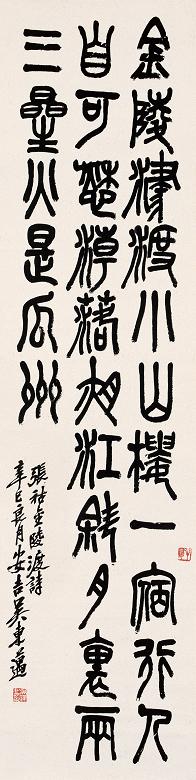 金陵津渡小山樓一宿行人
自可愁潮落夜江斜月裏兩
三星火是瓜州
張祜金陵渡詩
辛巳良月安吉吳東邁